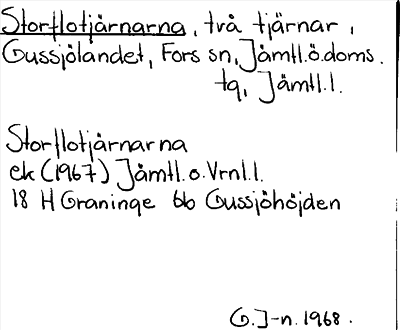 Storflotjärnarna, två tjärnar,
Gussjölandet, Fors sn, Jämtl.ö.doms.
tg, Jämtl.l.
Storflotjärnarna
ek (1967) Jämtl.o.Vrnl.l.
18 H Graninge 6b Gussjöhöjden
G.J-n. 1968.